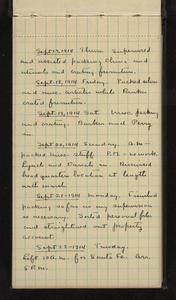 Sept 17, 1914 Thurs. Supervised
and assisted packing china and
utensils and crating furniture.
Sept. 18, 1914 Friday. Packed silver
and misc. articles while Barker
crated furniture.
Sept. 19, 1914 Sat. Misc. packing
and crating. Barker and Perry
in
Sept. 20, Sunday. A.M. -
packed misc. stuff. P.M. - no work.
Lynch and in. Reviewed
headquarters location at length
with march.
Sept. 21 - 1914 Monday. Finished
packing so far as my supervision
is necessary. Sorted personal files
and straightened out property
account.
Sept. 22 - 1914 Tuesday.
Left 10 A.M. for Santa Fe. Arr.
5 P.M.